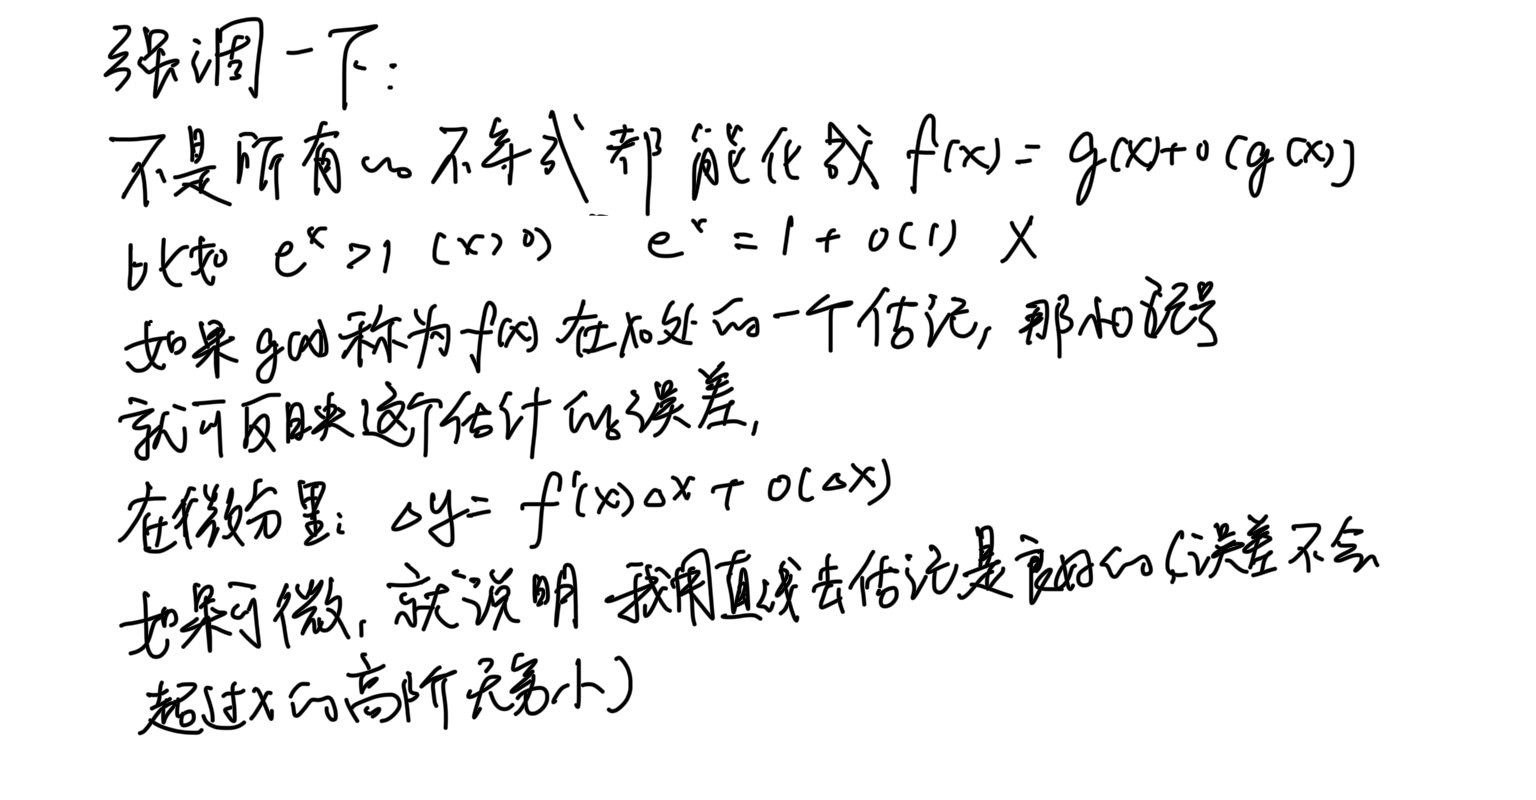 强调一下:
不是所有的不等式都能化成 f(x) = g(x)+o(g(x))
比如 eˣ>1 (x>0) eˣ = 1 + o(1) X
如果g(x)称为f(x)在x₀处的一个估记, 那小o记号
就可反映这个估计的误差,
在微分里: △y= f'(x)△x + o(△x)
如果可微, 就说明 我用直线去估记是良好的(误差不会
超过x的高阶无穷小)